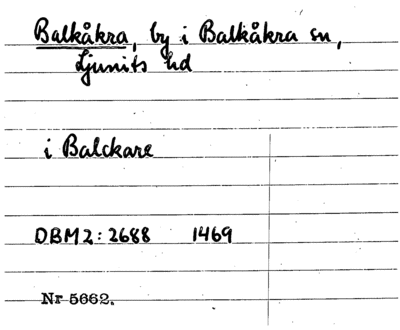 Balkåkra, by i Balkåkra sn,
Ljunits hd
i Balckare
DBM2:2688 1469
Nr 5662.